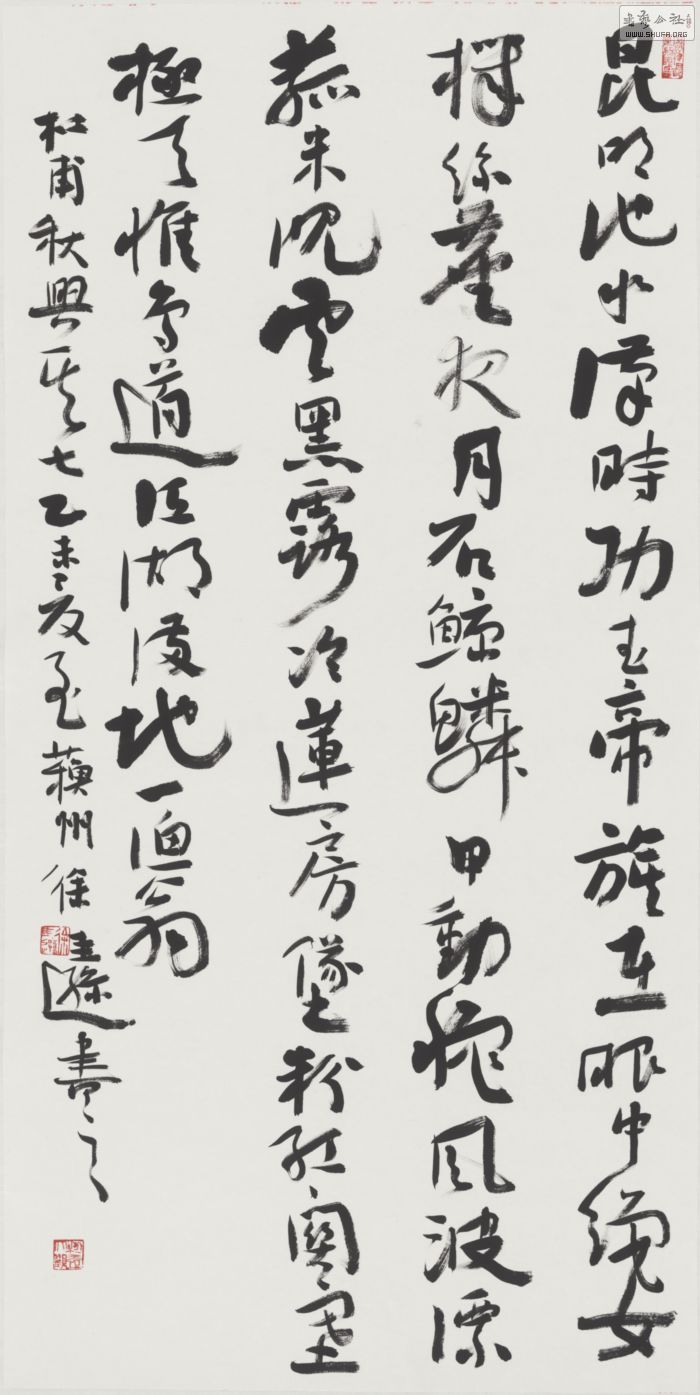 昆明池水漢時功武帝旗在眼中織女
機絲虛夜月石鯨鱗甲動秋風波漂
菰米沈雲黑露冷蓮房墜粉紅關塞
極天惟鳥道江湖滿地一漁翁
杜甫秋興其七乙未夏至蘓州徐圭遜書之
書藝公社
WWW.SHUFA.ORG